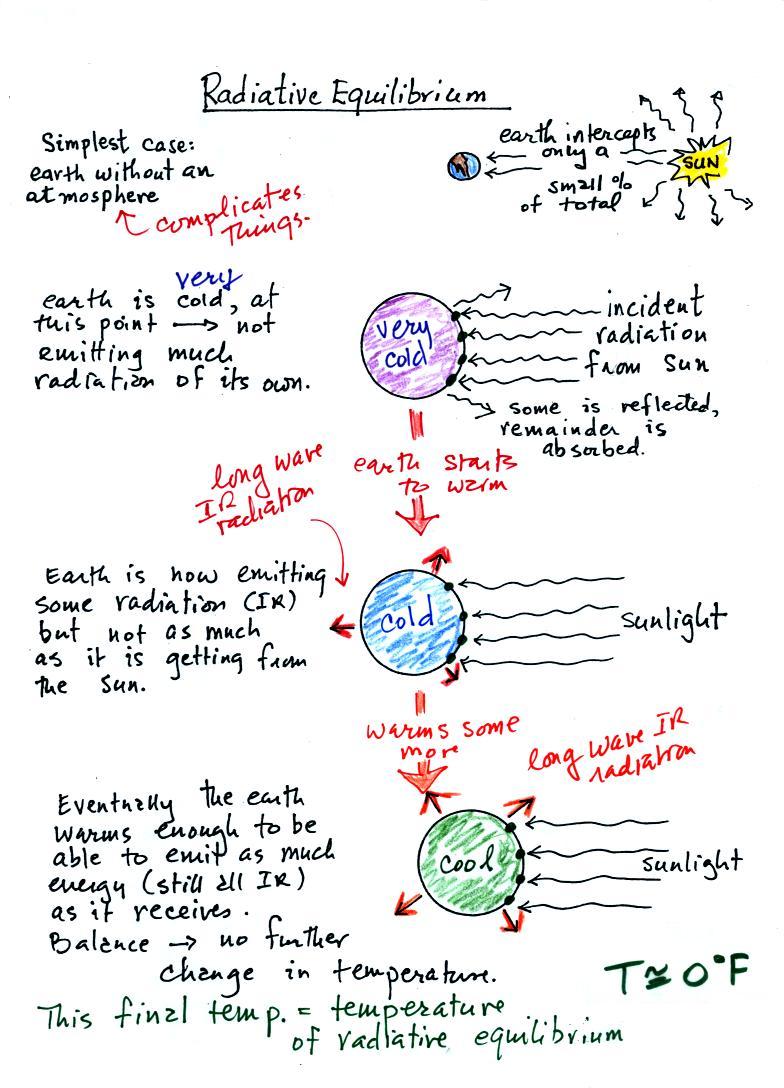 Radiative Equilibrium
Simplest case:
earth without an
atmosphere
complicates
things.
earth intercepts
only a
small %
of total
SUN
very
earth is cold, at
this point → not
emitting much
radiation of its own.
very
cold
incident
radiation
from Sun
some is reflected,
remainder is
absorbed.
earth starts
to warm
long wave
IR
radiation
Earth is now emitting
some radiation (IR)
but not as much
as it is getting from
the Sun.
cold
sunlight
warms some
more
long wave IR
radiation
Eventually the earth
warms enough to be
able to emit as much
energy (still all IR)
as it receives.
Balance → no further
change in temperature.
cool
sunlight
T≅0°F
This final temp. = temperature
of radiative equilibrium